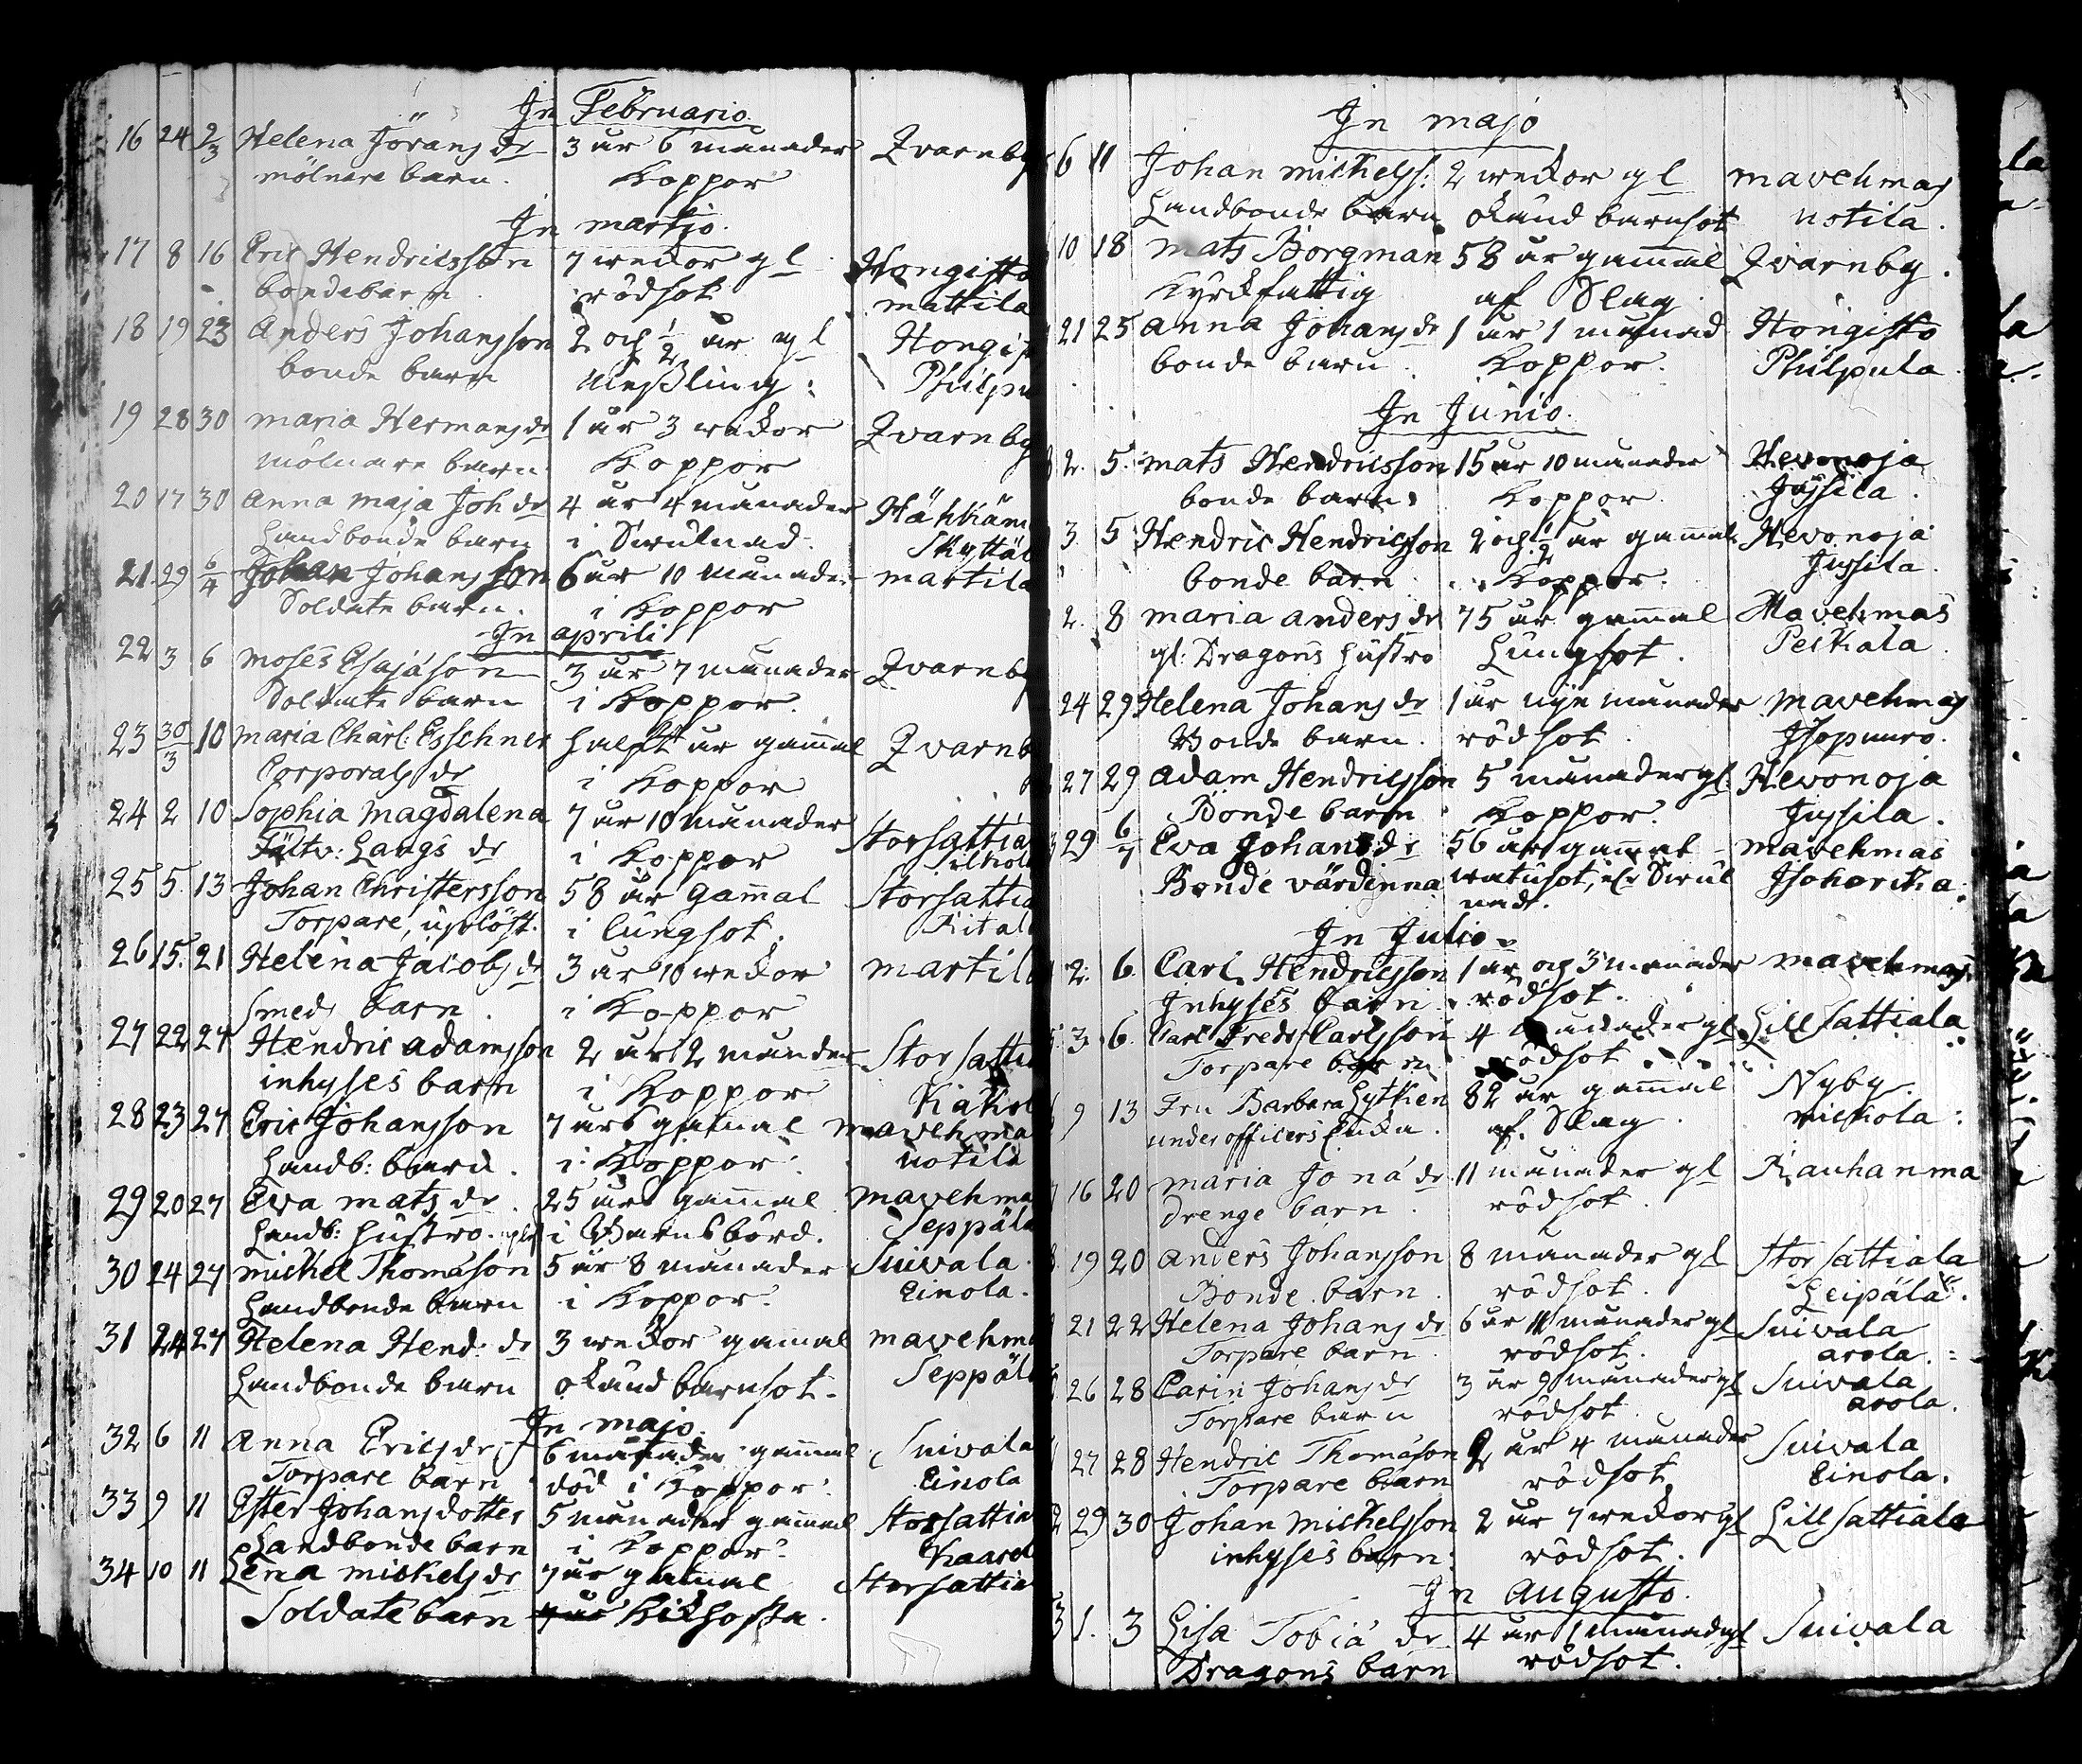 In Februario
16 24 2/3 Helena Jörans dr 3 år 6 månader Qvarnby
mölnare barn. Koppor
In martio.
17 8 16 Eric Hendricsson 7 wekor gl Hongisto
bondebarn rödsot mattila
18 19 23 Anders Johansson 2 och 1/2 år gl Hongis
bonde barn Messling: Philpu
19 28 30 maria Hermans dr 1 år 3 wekor Qvarnby
mölnare barn Koppor
20 17 30 anna maja Joh dr 4 år 4 månader Hähkäm
Landbonde barn i Swulnad. Skyttäl
21. 29 6/4 Johan Johansson 6 år 10 månader martila
Soldate barn. i Koppor
In aprili
22 3 6 moses Esajáson 3 år 7 månader Qvarnby
Soldate barn i Koppor.
23 30/3 10 maria Charl: Esschner halft år gam̄al Qvarnb
Corporals dr i Koppor
24 2 10 Sophia magdalena 7 år 10 månader Storsattia
Fältv: Langs dr i Koppor Silkol
25 5. 13 Johan Christersson 58 år gam̄al Storsattia
Torpare, uslöst. i lungsot. Kital
26 15. 21 Helena Jacobs dr 3 år 10 wekor martila
Smeds barn. i Koppor
27 22 27 Hendric adamsson 2 år 2 månder Stor satti
inhyses barn i Koppor Käkol
28 23 27 Eric Johansson 7 års gamal mavehma
Landb: barn. i Koppor. Uotila
29 20 27 Eva mats dr 25 års gam̄al mavehma
Landb: hustro. i Barnsbörd. Seppäla
30 24 27 michel Thomáson 5 år 8 månader Suivala.
Landbonde barn i Koppor. Einola.
31 24 27 Helena Hend: dr 3 wekor gamal mavehma
Landbonde barn okänd barnsot. Seppäl
In majo.
32 6 11 Anna Erics dr 6 månader gam̄al Suivala
Torpare barn död i Koppor. Einola
33 9 11 Ester Johansdotter 5 månader gam̄al Storsattia
Landbonde barn i Koppor. Kaarel
34 10 11 Lena mickels dr 7 år gamal Storsattia
Soldate barn 7 år Kikhosta.
In majo
6 11 Johan michelss: 2 wekor gl mavehmas
Landbonde barn okänd barnsot Uotila.
10 18 mats Borgman 58 år gam̄al Qvarnby.
Kyrckfattig af Slag
21 25 anna Johans dr 1 år 1 månad Hongisto
bonde barn. Koppor. Philpula.
In Junio.
2. 5. mats Hendricsson 15 år 10 månader Hevonoja
bonde barn. Koppor. Jussila.
3. 5 Hendric Hendricsson 2 och 1/2 år gam̄al Hevonoja
bonde barn. Koppor. Jussila.
2. 8 maria anders dr 75 år gam̄al Mavehmas
gl: Dragons hustro Lungsot. Peckala
24 29 Helena Johans dr 1 år nije månader mavehmas
Bonde barn. rödsot. Isopuuro.
27 29 adam Hendricsson 5 månader gl. Hevonoja
Bonde barn Koppor. Jussila.
29 6/7 Eva Johans dr 56 år gam̄al mavehmas
Bonde värdinna watusot, elr Swul Isohorha.
nadt.
In Julio
2. 6. Carl Hendricsson 1 år och 3 månader mavehmas
Inhyses barn. rödsot.
3. 6. Carl Fredr Carlsson 4 månader gl Lill sattiala
Torpare barn rödsot.
9 13 Fru Barbara Lytkien 82 år gam̄al Nyby
underofficers Enka. af. Slag. nickola:
16 20 maria Joná dr 11 månader gl Rauhanma
drenge barn. rödsot.
19 20 anders Johansson 8 månader gl Stor sattiala
Bonde barn. rödsot. Leipälä.
21 22 Helena Johans dr 6 år 11 månader gl Suivala
Torpare barn. rödsot. arola.
26 28 Carin Johans dr 3 år 9 månader gl Suivala
Torpare barn rödsot. arola.
27 28 Hendric Thomáson 2 år 4 månader Suivala
Torpare barn rödsot Einola.
29 30 Johan Michelsson 2 år 7 wekor gl Lill sattiala
inhyses barn. rödsot.
In Augusto.
1. 3 Lisa Tobiá dr 4 år 1 månad gl Suivala
Dragons barn rödsot.